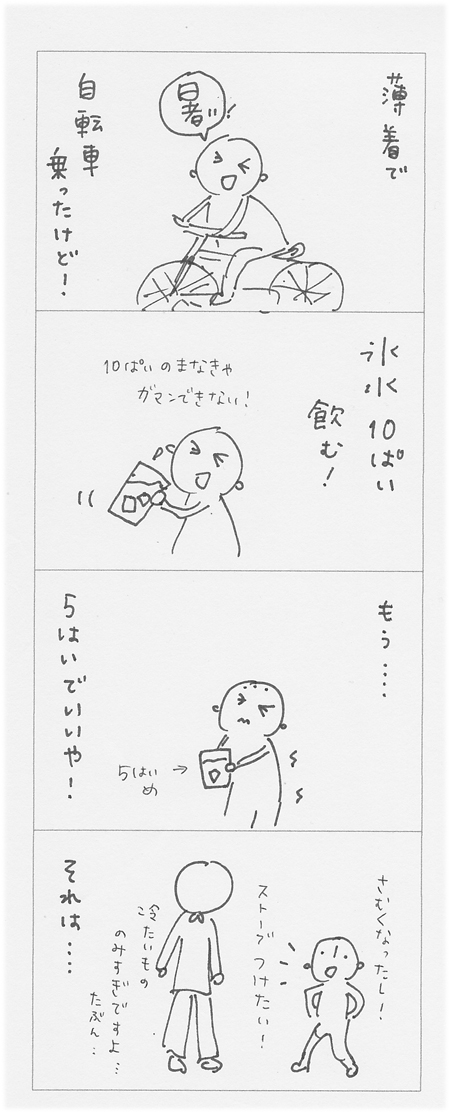 薄着で
暑い!
自転車
乗ったけど!
氷水10ぱい
飲む!
10ぱいのまなきゃ
ガマンできない!
もう....
5はいめ
5はいでいいや!
さむくなったし!
ストーブつけたい!
冷たいもの
のみすぎですよ...
たぶん..
それは....